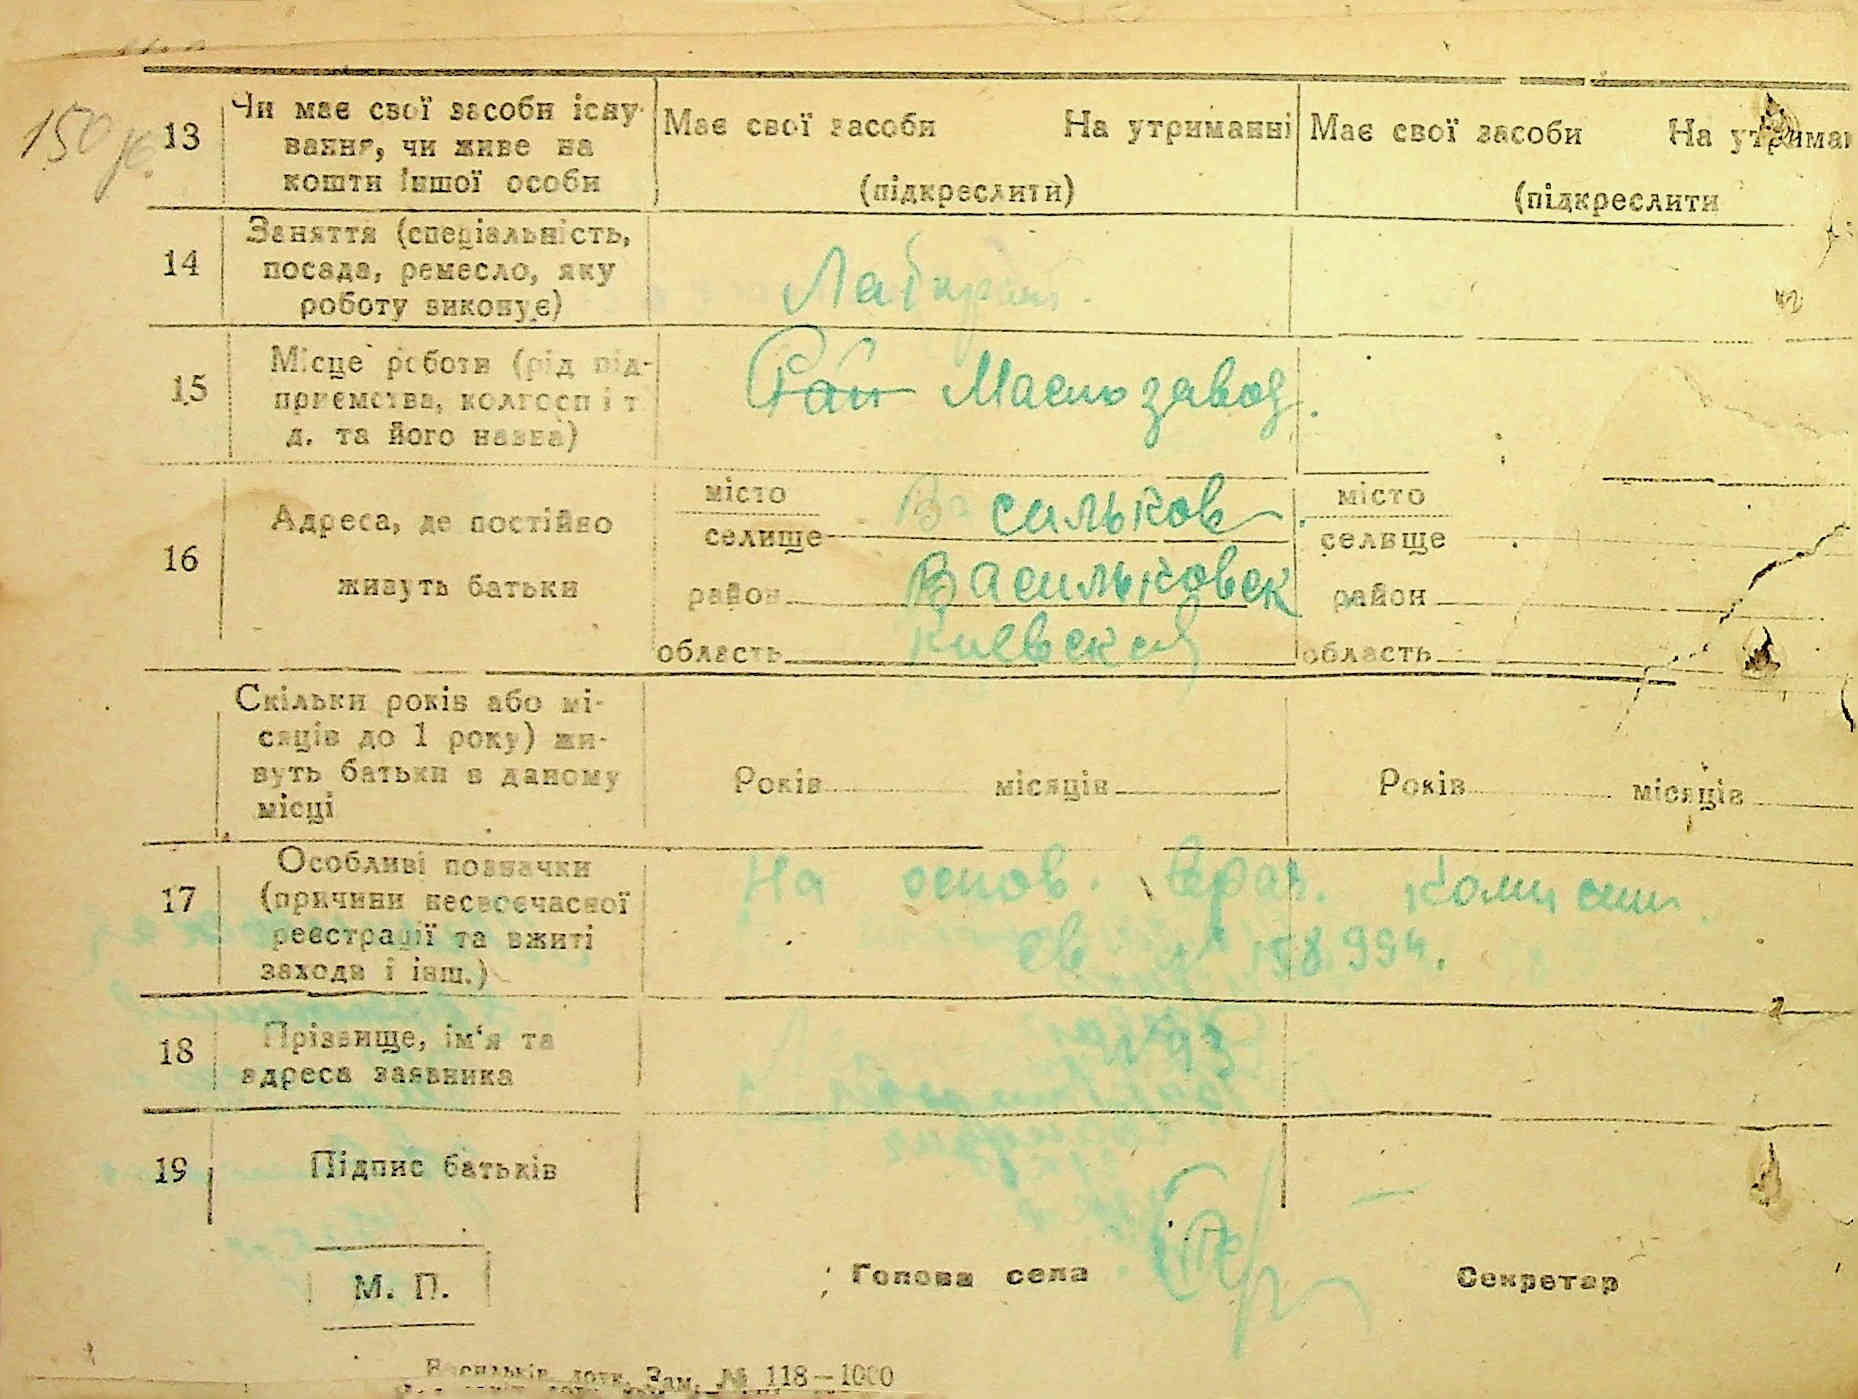 150
13 Чи має свої засоби існу-
вання, чи живе на
кошти іншої особи
Має свої засоби На утриманні
(підкреслити)
Має свої засоби На утриман
(підкреслити
14 Заняття (спеціальність,
посада, ремесло, яку
роботу виконує)
Лаборант.
15 Місце роботи (рід під-
приємства, колгосп і т
д. та його назва)
Рай Маслозавод.
16 Адреса, де постійно
живуть батьки
місто
селище
Васильков
район Васильковск
область Киевская
місто
селище
район
область
Скільки років або мі-
сяців до 1 року) жи-
вуть батьки в даному
місці
Років місяців
Років місяців
17 Особливі позначки
(причини несвоєчасної
реєстрації та вжиті
заходи і інш.)
На основ. врач. комиссии.
св № 158994.
18 Прізвище, ім‘я та
адреса заявника
19 Підпис батьків
М. П.
Голова села
Секретар
Васильків Зам. № 118—1000